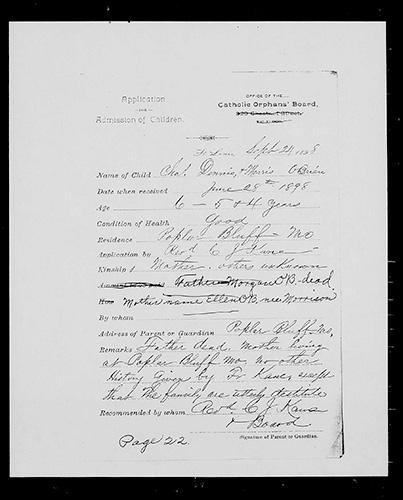 Application
FOR
Admission of Children.
OFFICE OF THE
Catholic Orphans' Board,
St Louis Sept 24 1898
Name of Child Chas. Dennis, & Morris O'Brien
Date when received June 28th 1898
Age 6 - 5 & 4 years
Condition of Health Good
Residence Poplar Bluff Mo
Application by Revd C J Kane
Kinship Mother. others unknown
Father Morgan O'B. dead
Mother name Ellen O'B. nee Morrison
By whom
Address of Parent or Guardian Poplar Bluff Mo,
Remarks Father dead. Mother living
at Poplar Bluff Mo. no other
History Given by Fr Kane, except
that The family are utterly destitute
Recommended by whom Revd. C J. Kane
& Board
Signature of Parent or Guardian.
Page 22